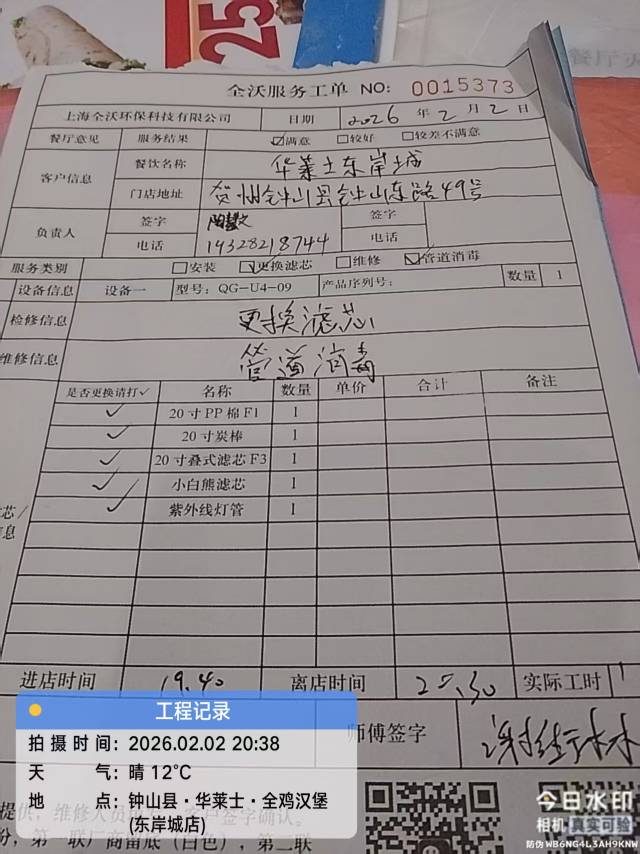 25
餐厅
全沃服务工单 NO: 0015373
上海全沃环保科技有限公司 日期 2026 年 2 月 2 日
餐厅意见 服务结果 ☑满意 □较好 □较差不满意
客户信息 餐饮名称 华莱士东岸城
门店地址 贺州钟山县钟山东路49号
负责人 签字 签字
电话 19328218744 电话
服务类别 □安装 ☑更换滤芯 □维修 ☑管道消毒
设备信息 设备一 型号: QG-U4-09 产品序列号: 数量 1
检修信息 更换滤芯
维修信息 管道消毒
是否更换请打✓ 名称 数量 单价 合计 备注
✓ 20寸PP棉F1 1
✓ 20寸炭棒 1
✓ 20寸叠式滤芯F3 1
✓ 小白熊滤芯 1
✓ 紫外线灯管 1
芯/
息
进店时间 19.40 离店时间 20.30 实际工时 1
师傅签字
工程记录
拍摄时间: 2026.02.02 20:38
天 气: 晴 12℃
地 点: 钟山县·华莱士·全鸡汉堡
(东岸城店)
今日水印
相机 真实可验
防伪 WB6NG4L3AH9KNW